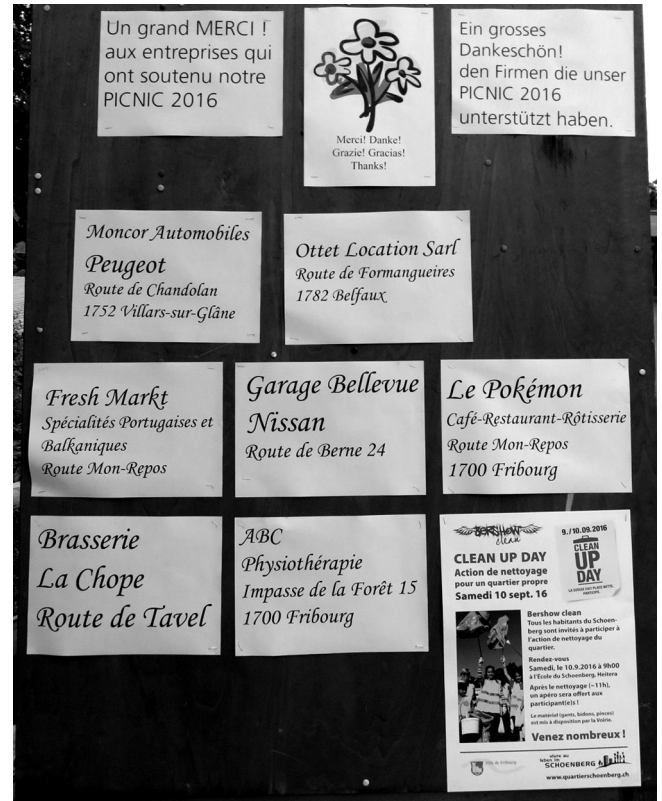 Un grand MERCI !
aux entreprises qui
ont soutenu notre
PICNIC 2016
Merci! Danke!
Grazie! Gracias!
Thanks!
Ein grosses
Dankeschön!
den Firmen die unser
PICNIC 2016
unterstützt haben.
Moncor Automobiles
Peugeot
Route de Chandolan
1752 Villars-sur-Glâne
Ottet Location Sarl
Route de Formangueires
1782 Belfaux
Fresh Markt
Spécialités Portugaises et
Balkaniques
Route Mon-Repos
Garage Bellevue
Nissan
Route de Berne 24
Le Pokémon
Café-Restaurant-Rôtisserie
Route Mon-Repos
1700 Fribourg
Brasserie
La Chope
Route de Tavel
ABC
Physiothérapie
Impasse de la Forêt 15
1700 Fribourg
BERSHOW
clean
9./10.09.2016
CLEAN
UP
DAY
CLEAN UP DAY
Action de nettoyage
pour un quartier propre
Samedi 10 sept. 16
Bershow clean
Tous les habitants du Schoen-
berg sont invités à participer à
l'action de nettoyage du
quartier.
Rendez-vous
Samedi, le 10.9.2016 à 9h00
à l'Ecole du Schoenberg, Heitera
Après le nettoyage (~11h),
un apéro sera offert aux
participant(e)s !
Le matériel (gants, bidons, pinces)
est mis à disposition par la Voirie.
Venez nombreux !
Ville de Fribourg
vivre au
leben im
SCHOENBERG
www.quartierschoenberg.ch